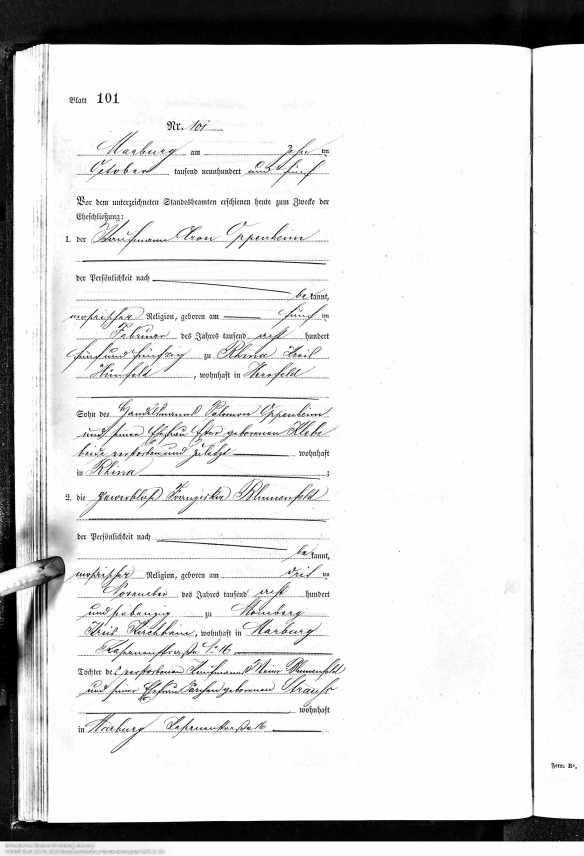 Blatt 101
Nr. 101
Marburg am zehn ten
October tausend neunhundert und fünf
Vor dem unterzeichneten Standesbeamten erschienen heute zum Zwecke der
Eheschließung:
1. der Kaufmann Aron Oppenheim
der Persönlichkeit nach
be kannt,
mosaischer Religion, geboren am fünf ten
Februar des Jahres tausend acht hundert
fünf und fünfzig zu Rhina Kreis
Hünfeld , wohnhaft in Hersfeld
Sohn des Handelsmanns Salomon Oppenheim
und seiner Ehefrau Ester geborenen Klebe
beide verstorben und zuletzt wohnhaft
in Rhina ;
2. die gewerblose Franziska Blumenfeld
der Persönlichkeit nach
be kannt,
mosaischer Religion, geboren am drit ten
November des Jahres tausend acht hundert
und siebenzig zu Momberg
Kreis Kirchhain , wohnhaft in Marburg
16
Tochter des verstorbenen Kaufmanns Meier Blumenfeld
und seiner Ehefrau geborenen Strauß
wohnhaft
in Marburg 16
Form. B¹,